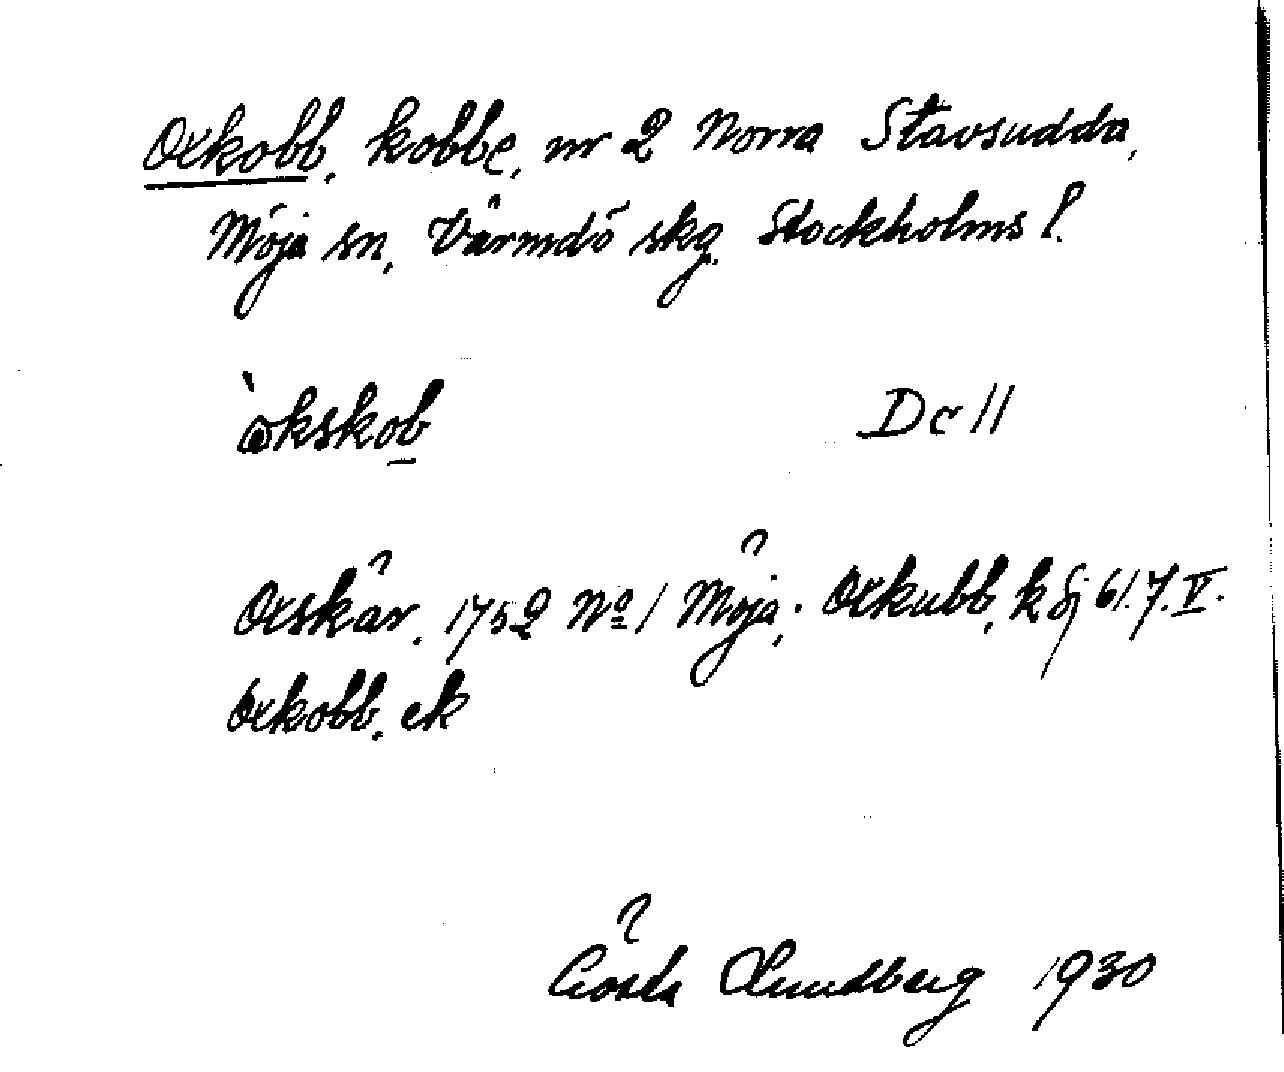 Oxkobb, kobbe, nr 2 Norra Stavsudda,
Möja sn, Värmdö skg. Stockholms l.
̀okskob Dc 11
Oxskär, 1752 Nº 1 Möja; Oxkubb, k 61.7.V.
Oxkobb, ek
Gösta Lundberg 1930